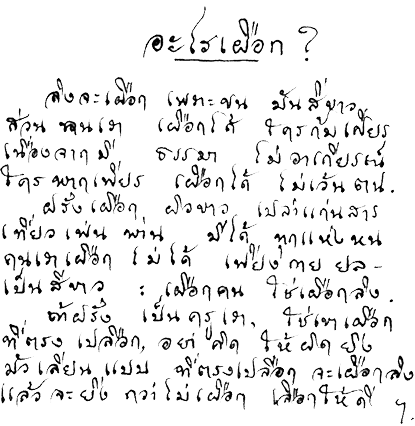 อะไรเผือก ?
ลิงจะเผือก เพราะขน มันสีขาว
ส่วน คนเรา เผือกได้
เนื่องจากมี ธรรมา ไม่อาเกียรณ์
ใคร พากเพียร เผือกได้ ไม่เว้นตน.
ฝรั่งเผือก ผิวขาว เปล่าแก่นสาร
เที่ยวเพ่นพ่าน มีได้ ทุกแห่งหน
คนเราเผือก ไม่ได้ เพียงกาย ยล-
เป็นสีขาว : เผือกคน ใช่เผือกลิง.
ถ้าฝรั่ง เป็นครูเรา, ใช่เขาเผือก
ที่ตรง เปลือก, อย่า คิด ให้ผิดยิ่ง
มัวเลียนแบบ ที่ตรงเปลือก จะเผือกลิง
แล้วจะยิ่ง กว่าไม่เผือก เลือกให้ดี ฯ.